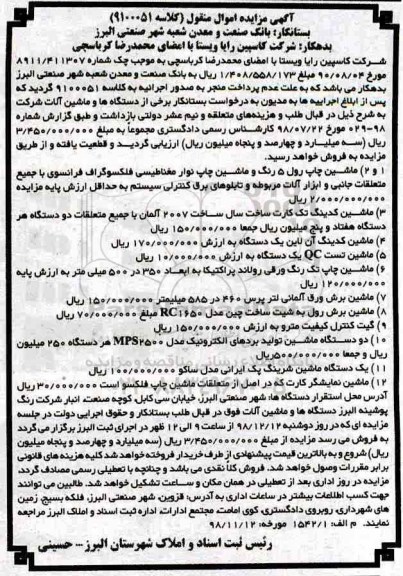 آگهی مزایده اموال منقول (کلاسه ۹۱۰۰۰۵۱)
بستانکار: بانک صنعت و معدن شعبه شهر صنعتی البرز
بدهکار: شرکت کاسپین رایا ویستا با امضای محمدرضا کرباسچی
شرکت کاسپین رایا ویستا با امضای محمدرضا کرباسچی به موجب چک شماره ۸۹۱۱/۴۱۱۳۰۷
مورخ ۹۰/۰۸/۰۴ مبلغ ۱/۴۰۸/۵۵۸/۱۷۳ ریال به بانک صنعت و معدن شعبه شهر صنعتی البرز
بدهکار می باشد که به علت عدم پرداخت منجر به صدور اجرائیه به کلاسه ۹۱۰۰۰۵۱ گردید که
پس از ابلاغ اجراییه ها به مدیون به درخواست بستانکار برخی از دستگاه ها و ماشین آلات شرکت
به شرح ذیل در قبال طلب و هزینه‌های متعلقه و نیم عشر دولتی بازداشت و طبق گزارش شماره
۰۲۹-۹۸ مورخ ۹۸/۰۷/۲۲ کارشناس رسمی دادگستری مجموعاً به مبلغ ۳/۴۵۰/۰۰۰/۰۰۰
ریال (سه میلیارد و چهارصد و پنجاه میلیون ریال) ارزیابی گردید و قطعیت یافته و از طریق
مزایده به فروش خواهد رسید.
۱ و ۲) ماشین چاپ رول ۵ رنگ و ماشین چاپ نوار مغناطیسی فلکسوگراف فرانسوی با جمیع
متعلقات جانبی و ابزار آلات مربوطه و تابلوهای برق کنترلی سیستم به حداقل ارزش پایه مزایده
۲/۰۰۰/۰۰۰/۰۰۰ ریال
۳) ماشین کدینگ تک کارت ساخت سال ساخت ۲۰۰۷ آلمان با جمیع متعلقات دو دستگاه هر
دستگاه هفتاد و پنج میلیون ریال جمعا ۱۵۰/۰۰۰/۰۰۰ ریال
۴) ماشین کدینگ آن لاین یک دستگاه به ارزش ۱۷۰/۰۰۰/۰۰۰ ریال
۵) ماشین تست QC یک دستگاه به ارزش ۱۰/۰۰۰/۰۰۰ ریال
۶) ماشین چاپ تک رنگ ورقی رولاند پراکتیکا به ابعاد ۳۵۰ در ۵۰۰ میلی متر به ارزش پایه
۱۲۰/۰۰۰/۰۰۰ ریال
۷) ماشین برش ورق آلمانی لتر پرس ۴۶۰ در ۵۸۵ میلیمتر ۱۵۰/۰۰۰/۰۰۰ ریال
۸) ماشین برش رول به شیت ساخت چین مدل RC۱۶۵۰ مبلغ ۷۰/۰۰۰/۰۰۰ ریال
۹) گیت کنترل کیفیت مترو به ارزش ۱۵۰/۰۰۰/۰۰۰ ریال
۱۰) دو دستگاه ماشین تولید بردهای الکترونیک مدل MPS۲۵۰۰ هر دستگاه ۲۵۰ میلیون
ریال و جمعا ۵۰۰/۰۰۰/۰۰۰ریال
۱۱) یک دستگاه ماشین شرینگ پک ایرانی مدل ساکو ۱۰۰/۰۰۰/۰۰۰ ریال
۱۲) ماشین نمایشگر کارت که در اصل از متعلقات ماشین چاپ فلکسو است ۳۰/۰۰۰/۰۰۰ ریال
آدرس محل استقرار دستگاه ها: شهر صنعتی البرز، خیابان سی کابل، کوچه صنعت، انبار شرکت رنگ
پوشینه البرز دستگاه ها و ماشین آلات فوق در قبال طلب بستانکار و حقوق اجرایی دولت در جلسه
مزایده ای که در روز دوشنبه ۹۸/۱۲/۱۲ از ساعت ۹ الی ۱۲ ظهر در اجرای ثبت البرز برگزار می گردد
به فروش می رسد مزایده از مبلغ ۳/۴۵۰/۰۰۰/۰۰۰ ریال (سه میلیارد و چهارصد و پنجاه میلیون
ریال) شروع و به بالاترین قیمت پیشنهادی از طرف خریدار فروخته خواهد شد کلیه هزینه های قانونی
برابر مقررات وصول خواهد شد. فروش کلاً نقدی می باشد و چنانچه با تعطیلی رسمی مصادف گردد،
مزایده در روز اداری بعد از تعطیلی در همان مکان و ساعت تشکیل خواهد شد. طالبین می توانند
جهت کسب اطلاعات بیشتر در ساعات اداری به آدرس: قزوین، شهر صنعتی البرز، فلکه بسیج، زمین
های شهرداری، روبروی دادگستری، کوی امامت، مجتمع ادارات، اداره ثبت اسناد و املاک البرز مراجعه
نمایند. م الف: ۱۵۴۲/۱ مورخه: ۹۸/۱۱/۱۲
رئیس ثبت اسناد و املاک شهرستان البرز – حسینی